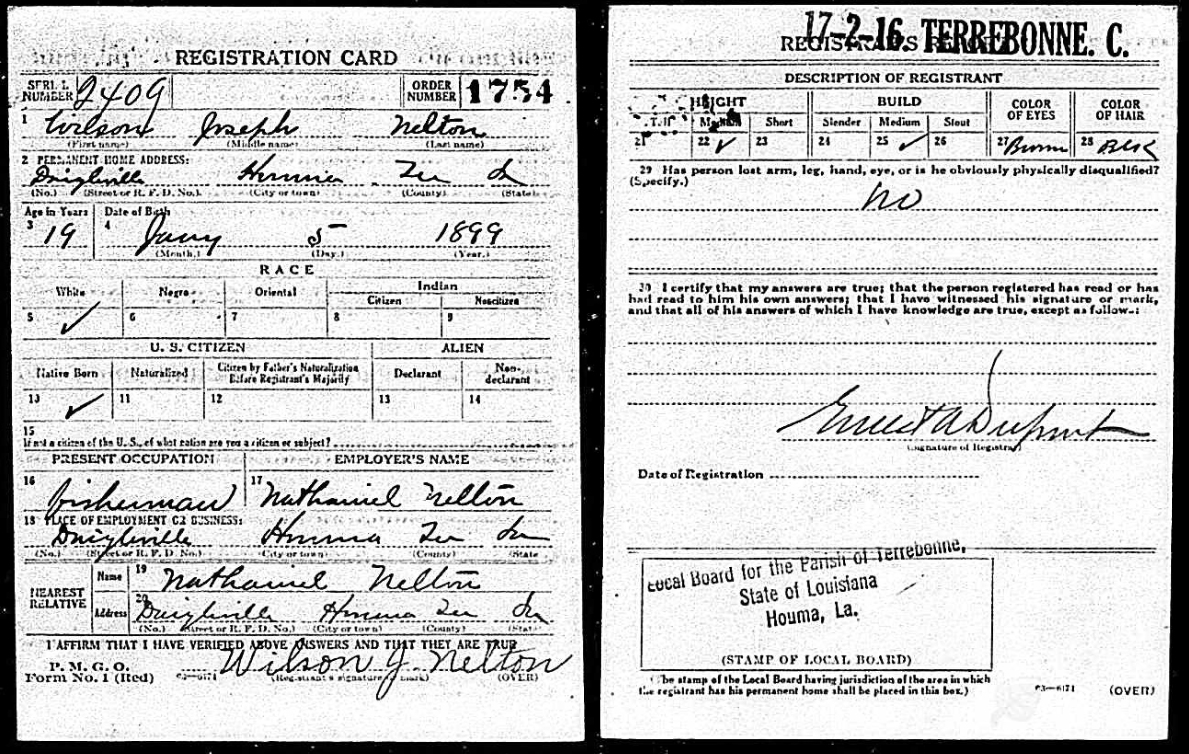 REGISTRATION CARD
SERIAL NUMBER 2409 ORDER NUMBER 1754
1 Wilson Joseph Nelton
(First name) (Middle name) (Last name)
2 PERMANENT HOME ADDRESS:
Daigleville Houma Ter La
(No.) (Street or R. F. D. No.) (City or town) (County) (State)
Age in Years Date of Birth
3 19 4 Jany 5 1899
(Month.) (Day.) (Year.)
RACE
White Negro Oriental Indian
Citizen Noncitizen
5 ✓ 6 7 8 9
U. S. CITIZEN ALIEN
Native Born Naturalized Citizen by Father's Naturalization Before Registrant's Majority Declarant Non-declarant
10 ✓ 11 12 13 14
15
If not a citizen of the U. S., of what nation are you a citizen or subject?
PRESENT OCCUPATION EMPLOYER'S NAME
16 fisherman 17 Nathaniel Nelton
18 PLACE OF EMPLOYMENT OR BUSINESS:
Daigleville Houma Ter La
(No.) (Street or R. F. D. No.) (City or town) (County) (State)
NEAREST RELATIVE Name 19 Nathaniel Nelton
Address 20 Daigleville Houma Ter La
(No.) (Street or R. F. D. No.) (City or town) (County) (State)
I AFFIRM THAT I HAVE VERIFIED ABOVE ANSWERS AND THAT THEY ARE TRUE
P. M. G. O.
Form No. 1 (Red) 03—6171 Wilson J Nelton
(Registrant's signature or mark) (OVER)
17-2-16. TERREBONNE. C.
REGISTRAR'S REPORT
DESCRIPTION OF REGISTRANT
HEIGHT BUILD COLOR OF EYES COLOR OF HAIR
Tall Medium Short Slender Medium Stout
21 22 ✓ 23 24 25 ✓ 26 27 Brown 28 Blk
29 Has person lost arm, leg, hand, eye, or is he obviously physically disqualified?
(Specify.)
no
30 I certify that my answers are true; that the person registered has read or has
had read to him his own answers; that I have witnessed his signature or mark,
and that all of his answers of which I have knowledge are true, except as follows:
Ernest A Dupont
(Signature of Registrar)
Date of Registration
Local Board for the Parish of Terrebonne,
State of Louisiana
Houma, La.
(STAMP OF LOCAL BOARD)
(The stamp of the Local Board having jurisdiction of the area in which
the registrant has his permanent home shall be placed in this box.)
03—6171 (OVER)